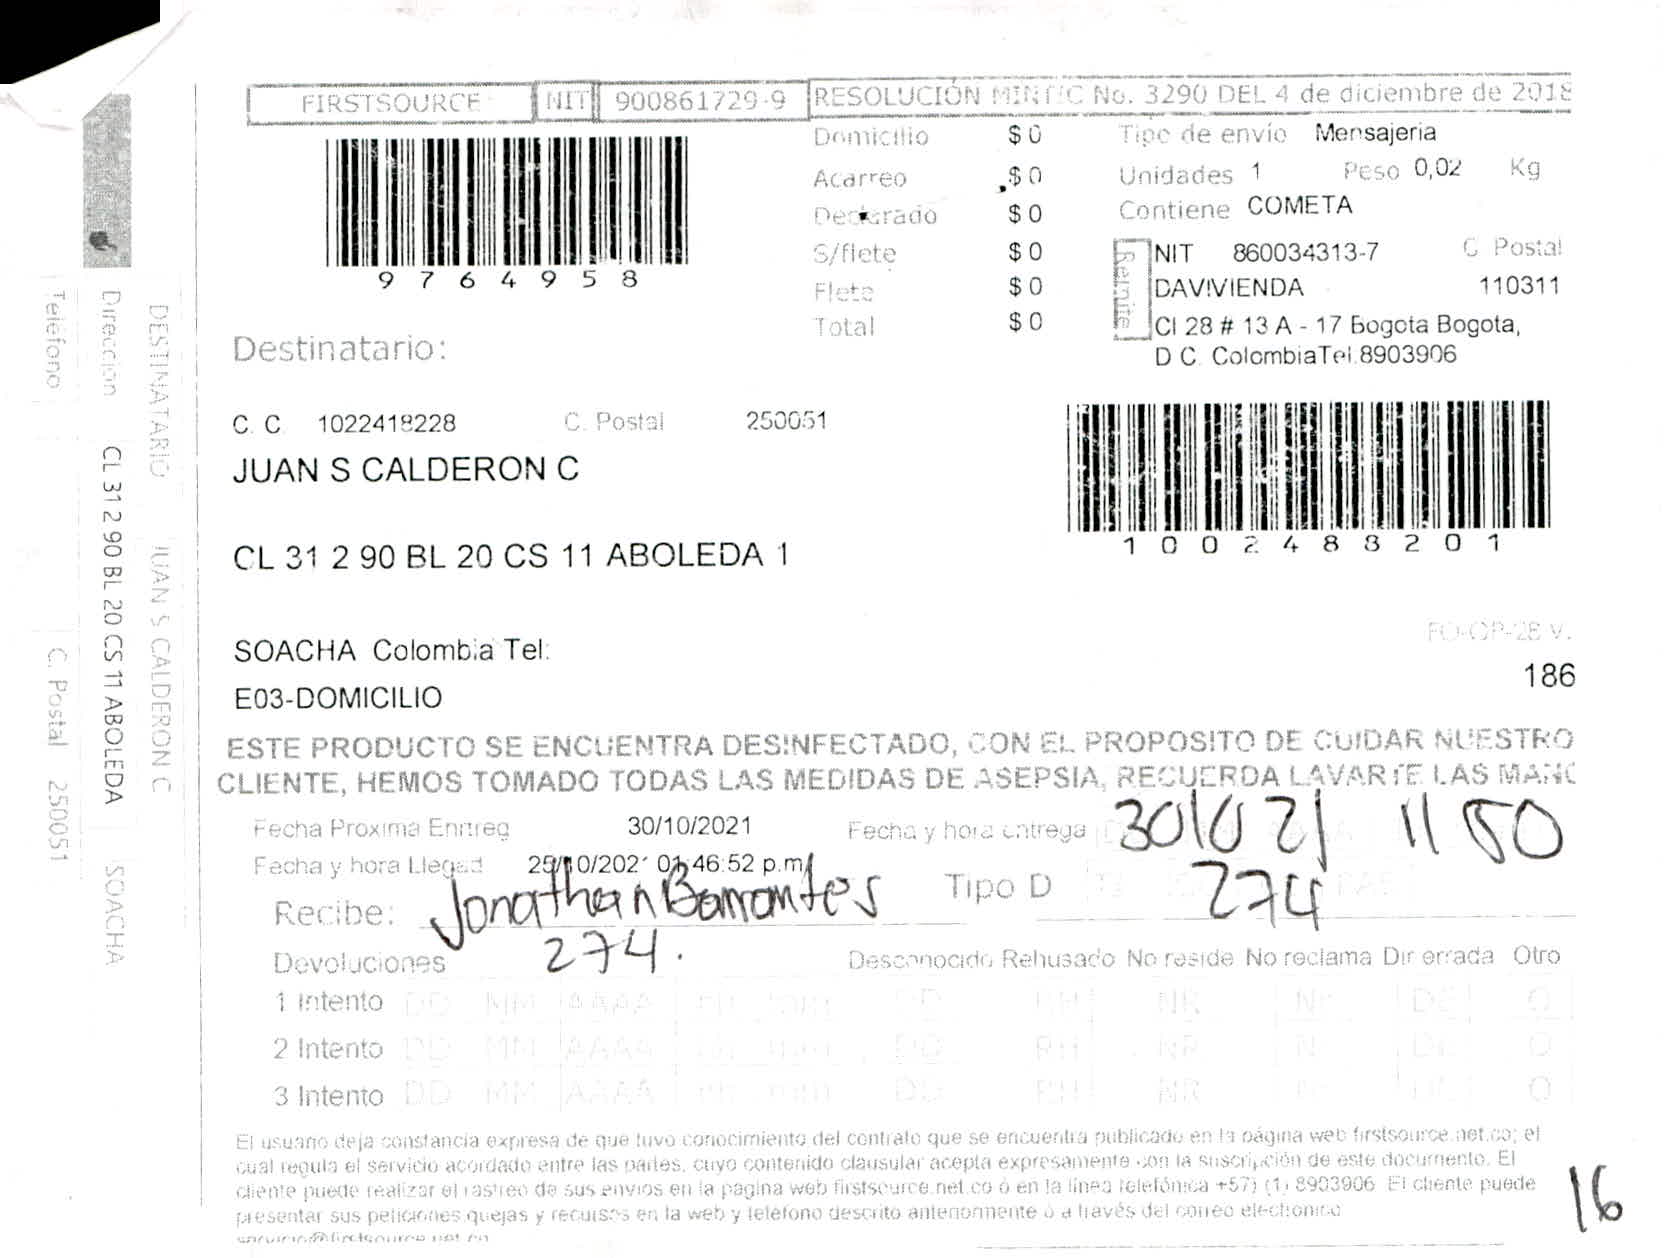 FIRSTSOURCE NIT 900861729-9 RESOLUCIÓN MINTIC No. 3290 DEL 4 de diciembre de 2018
9764958
Domicilio $ 0
Acarreo $ 0
Declarado $ 0
S/flete $ 0
Flete $ 0
Total $ 0
Tipo de envío Mensajeria
Unidades 1 Peso 0,02 Kg
Contiene COMETA
Remite
NIT 860034313-7 C Postal
DAVIVIENDA 110311
Cl 28 # 13 A - 17 Bogota Bogota,
D C. ColombiaTel.8903906
Destinatario:
C. C. 1022418228 C. Postal 250051
JUAN S CALDERON C
1002488201
CL 31 2 90 BL 20 CS 11 ABOLEDA 1
SOACHA Colombia Tel:
E03-DOMICILIO
FO-OP-28 V.
186
ESTE PRODUCTO SE ENCUENTRA DESINFECTADO, CON EL PROPOSITO DE CUIDAR NUESTRO
CLIENTE, HEMOS TOMADO TODAS LAS MEDIDAS DE ASEPSIA, RECUERDA LAVARTE LAS MANO
Fecha Proxima Enntreg 30/10/2021 Fecha y hora entrega 30/10 21 11 50
Fecha y hora Llegad 25/10/2021 01:46:52 p.m.
Recibe: Jonathan Barrantes Tipo D 274
274.
Devoluciones Desconocido Rehusado No reside No reclama Dir errada Otro
1 Intento DD MM AAAA hh mm DD RH NR Nr DE O
2 Intento DD MM AAAA hh mm DD RH NR N DE O
3 Intento DD MM AAAA hh mm DD RH NR DE O
El usuario deja constancia expresa de que tuvo conocimiento del contrato que se encuentra publicado en la página web firstsource.net.co; el
cual regula el servicio acordado entre las partes, cuyo contenido clausular acepta expresamente con la suscripción de este documento. El
cliente puede realizar el rastreo de sus envios en la pagina web firstsource.net.co ó en la línea telefónica +57) (1) 8903906 El cliente puede
presentar sus peticiones quejas y recursos en la web y telefono descrito anteriormente o a través del correo electronico
servicio@firstsource.net.co
16
DESTINATARIO JUAN S CALDERON C
Dirección CL 31 2 90 BL 20 CS 11 ABOLEDA SOACHA
Teléfono C. Postal 250051